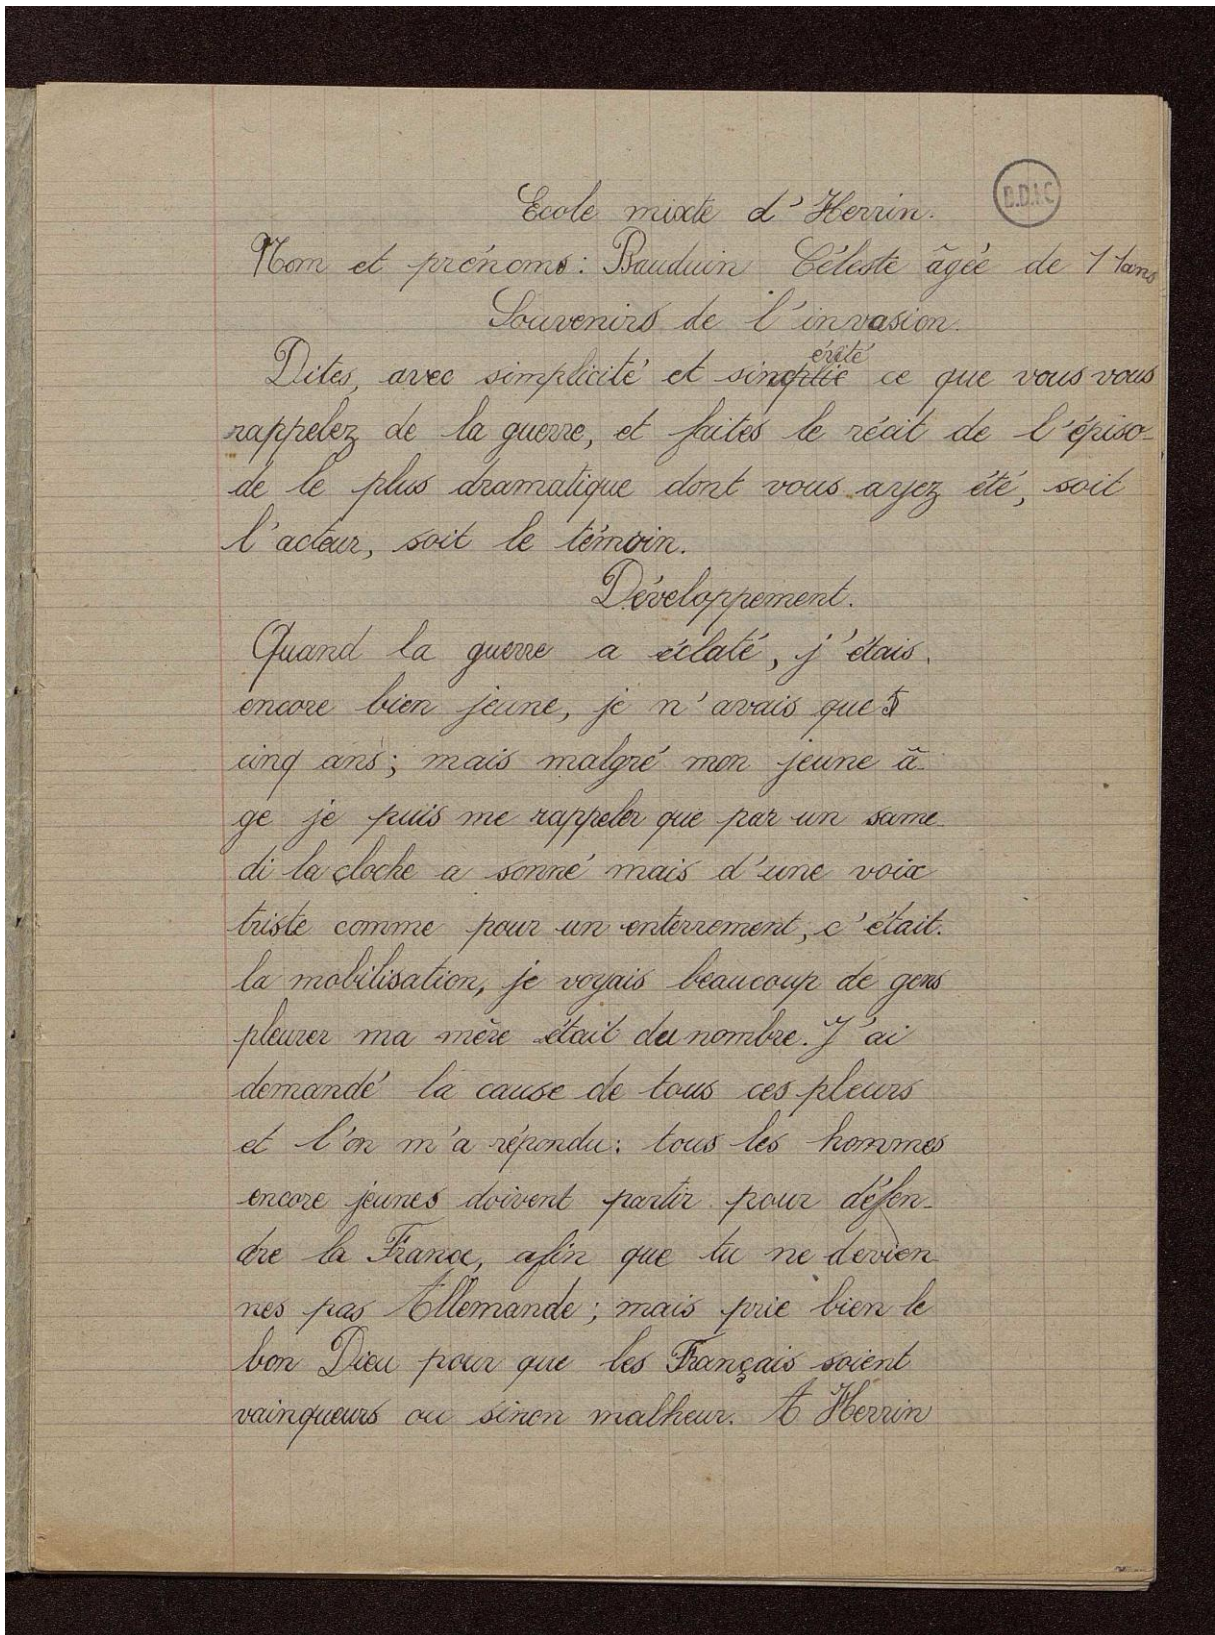 B.D.I.C
Ecole mixte d'Herrin.
Nom et prénoms : Bauduin Céleste âgée de 11ans
Souvenirs de l'invasion.
érité
Dites, avec simplicité et sincplié ce que vous vous
rappelez de la guerre, et faites le récit de l'épiso-
de le plus dramatique dont vous ayez été, soit
l'acteur, soit le témoin.
Développement.
Quand la guerre a éclaté, j'étais
encore bien jeune, je n'avais que 5
cinq ans ; mais malgré mon jeune â-
ge je puis me rappeler que par un same-
di la cloche a sonné mais d'une voix
triste comme pour un enterrement, c'était.
la mobilisation, je voyais beaucoup de gens
pleurer ma mère était du nombre. J'ai
demandé la cause de tous ces pleurs
et l'on m'a répondu : tous les hommes
encore jeunes doivent partir pour défen-
dre la France, afin que tu ne devien
nes pas Allemande ; mais prie bien le
bon Dieu pour que les Français soient
vainqueurs ou sinon malheur. A Herrin